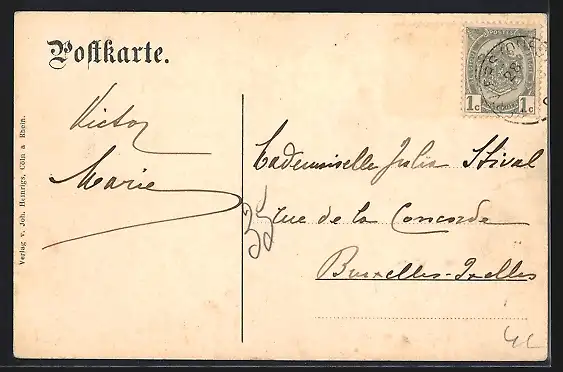 Postkarte.
POSTES
1c 1c
Victor
Marie
Mademoiselle Julia Stival
35 rue de la Concorde
Bruxelles-Ixelles
Verlag v. Joh. Heinrigs, Cöln a Rhein.